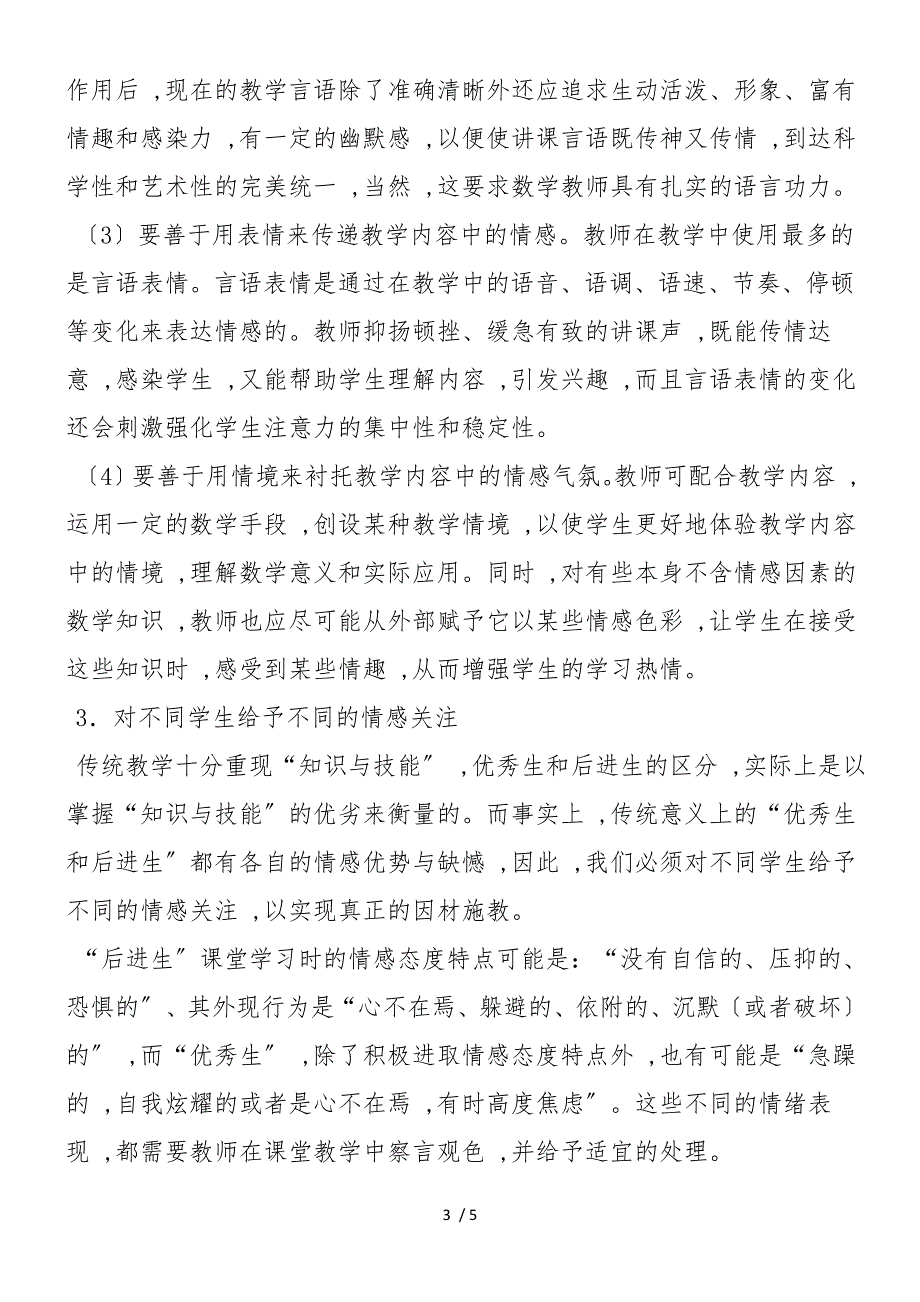 作用后 ,现在的教学言语除了准确清晰外还应追求生动活泼、形象、富有
情趣和感染力 ,有一定的幽默感 ,以便使讲课言语既传神又传情 ,到达科
学性和艺术性的完美统一 ,当然 ,这要求数学教师具有扎实的语言功力。
〔3〕要善于用表情来传递教学内容中的情感。教师在教学中使用最多的
是言语表情。言语表情是通过在教学中的语音、语调、语速、节奏、停顿
等变化来表达情感的。教师抑扬顿挫、缓急有致的讲课声 ,既能传情达
意 ,感染学生 ,又能帮助学生理解内容 ,引发兴趣 ,而且言语表情的变化
还会刺激强化学生注意力的集中性和稳定性。
〔4〕要善于用情境来衬托教学内容中的情感气氛。教师可配合教学内容 ,
运用一定的数学手段 ,创设某种教学情境 ,以使学生更好地体验教学内容
中的情境 ,理解数学意义和实际应用。同时 ,对有些本身不含情感因素的
数学知识 ,教师也应尽可能从外部赋予它以某些情感色彩 ,让学生在接受
这些知识时 ,感受到某些情趣 ,从而增强学生的学习热情。
3．对不同学生给予不同的情感关注
传统教学十分重现“知识与技能〞 ,优秀生和后进生的区分 ,实际上是以
掌握“知识与技能〞的优劣来衡量的。而事实上 ,传统意义上的“优秀生
和后进生〞都有各自的情感优势与缺憾 ,因此 ,我们必须对不同学生给予
不同的情感关注 ,以实现真正的因材施教。
“后进生〞课堂学习时的情感态度特点可能是：“没有自信的、压抑的、
恐惧的〞、其外现行为是“心不在焉、躲避的、依附的、沉默〔或者破坏〕
的〞 ,而“优秀生〞 ,除了积极进取情感态度特点外 ,也有可能是“急躁
的 ,自我炫耀的或者是心不在焉 ,有时高度焦虑〞。这些不同的情绪表
现 ,都需要教师在课堂教学中察言观色 ,并给予适宜的处理。
3 / 5